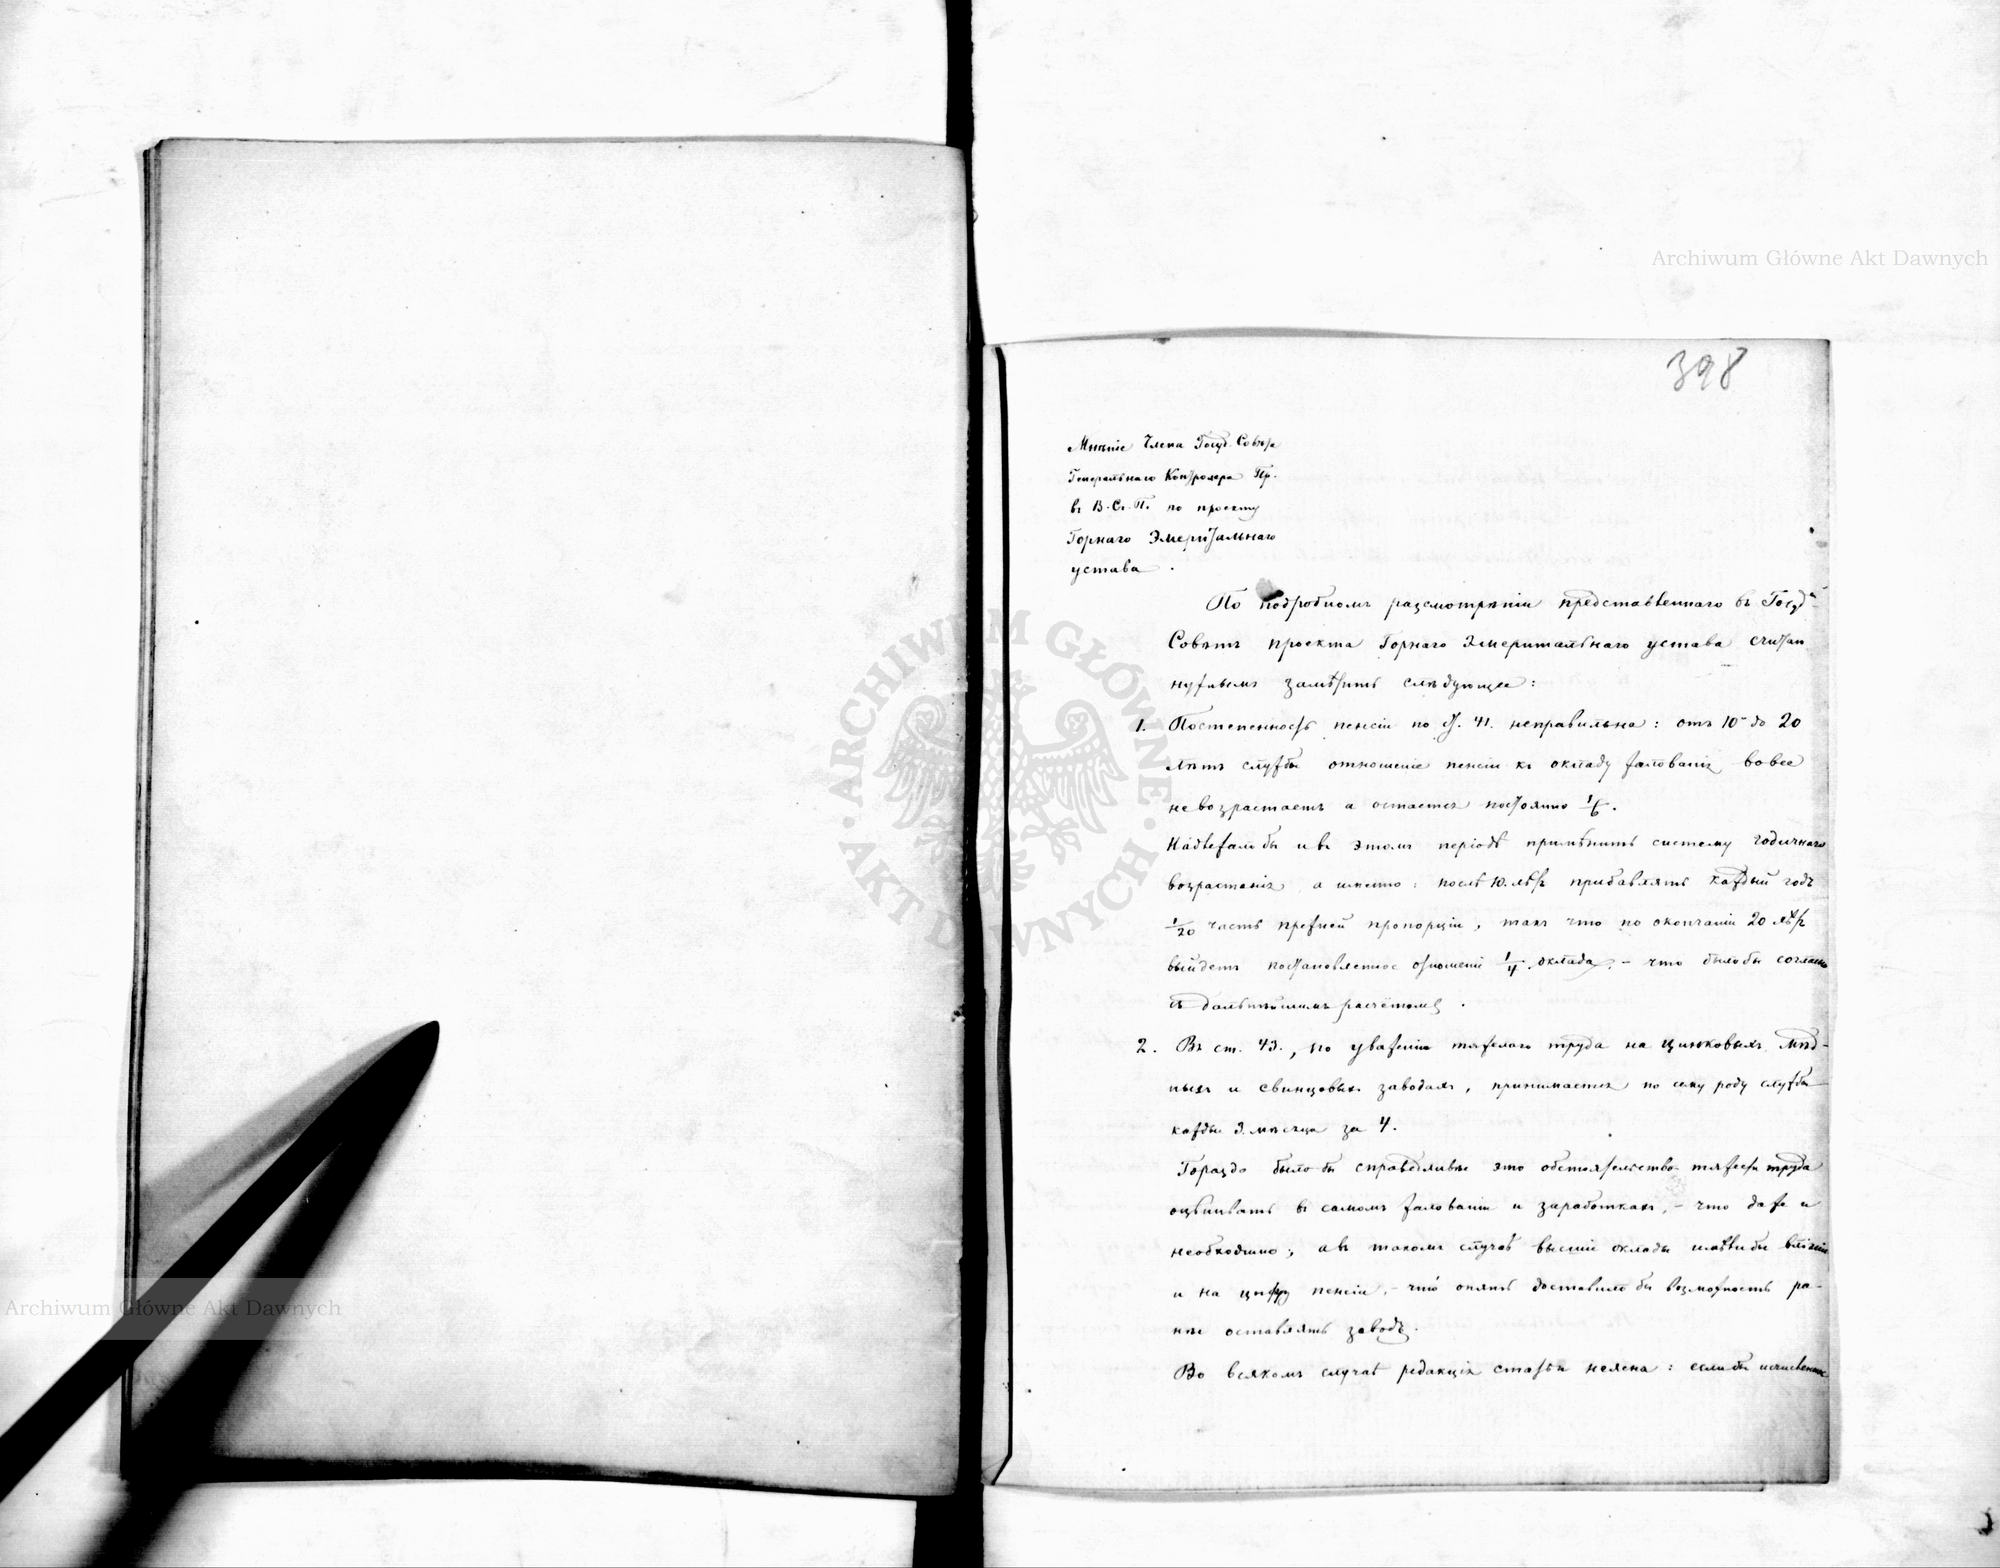 398
Мнѣніе Члена Госуд. Совѣта
Генеральнаго Контролера Пр.
въ В. Ст. П. по проекту
Горнаго Эмеритальнаго
устава.
По подробномъ разсмотрѣніи представленнаго въ Госуд.
Совѣтъ проекта Горнаго Эмеритальнаго устава считаю
нужнымъ замѣтить слѣдующее:
1. Постепенность пенсіи по ст. 41. неправильна: отъ 10 до 20
лѣтъ службы отношеніе пенсіи къ окладу жалованія вовсе
не возрастаетъ а остается постоянно 1/6.
Надлежало бы и въ этомъ періодѣ примѣнить систему годичнаго
возрастанія а именно: послѣ 10. лѣтъ прибавлять каждый годъ
1/20 часть прежней пропорціи, такъ что по окончаніи 20 лѣтъ
выйдетъ постановленное отношеніе 1/4 оклада, - что было бы согласно
съ дальнѣйшимъ расчётомъ.
2. Въ ст. 43., по уваженію тяжелаго труда на цинковыхъ, мѣд-
ныхъ и свинцовыхъ заводахъ, принимается по сему роду службы
кажды 3. мѣсяца за 4.
Гораздо было бы справедливѣе это обстоятельство тяжести труда
оцѣнивать въ самомъ жалованіи и заработкахъ, - что даже и
необходимо; а въ такомъ случаѣ высшіе оклады имѣли бы вліяніе
и на цифру пенсіи, - что опять доставило бы возможность ра-
нѣе оставлять заводъ.
Во всякомъ случаѣ редакція статьи неясна: если бы исчисленіе
Archiwum Główne Akt Dawnych
Archiwum Główne Akt Dawnych
ARCHIWUM GŁÓWNE AKT DAWNYCH